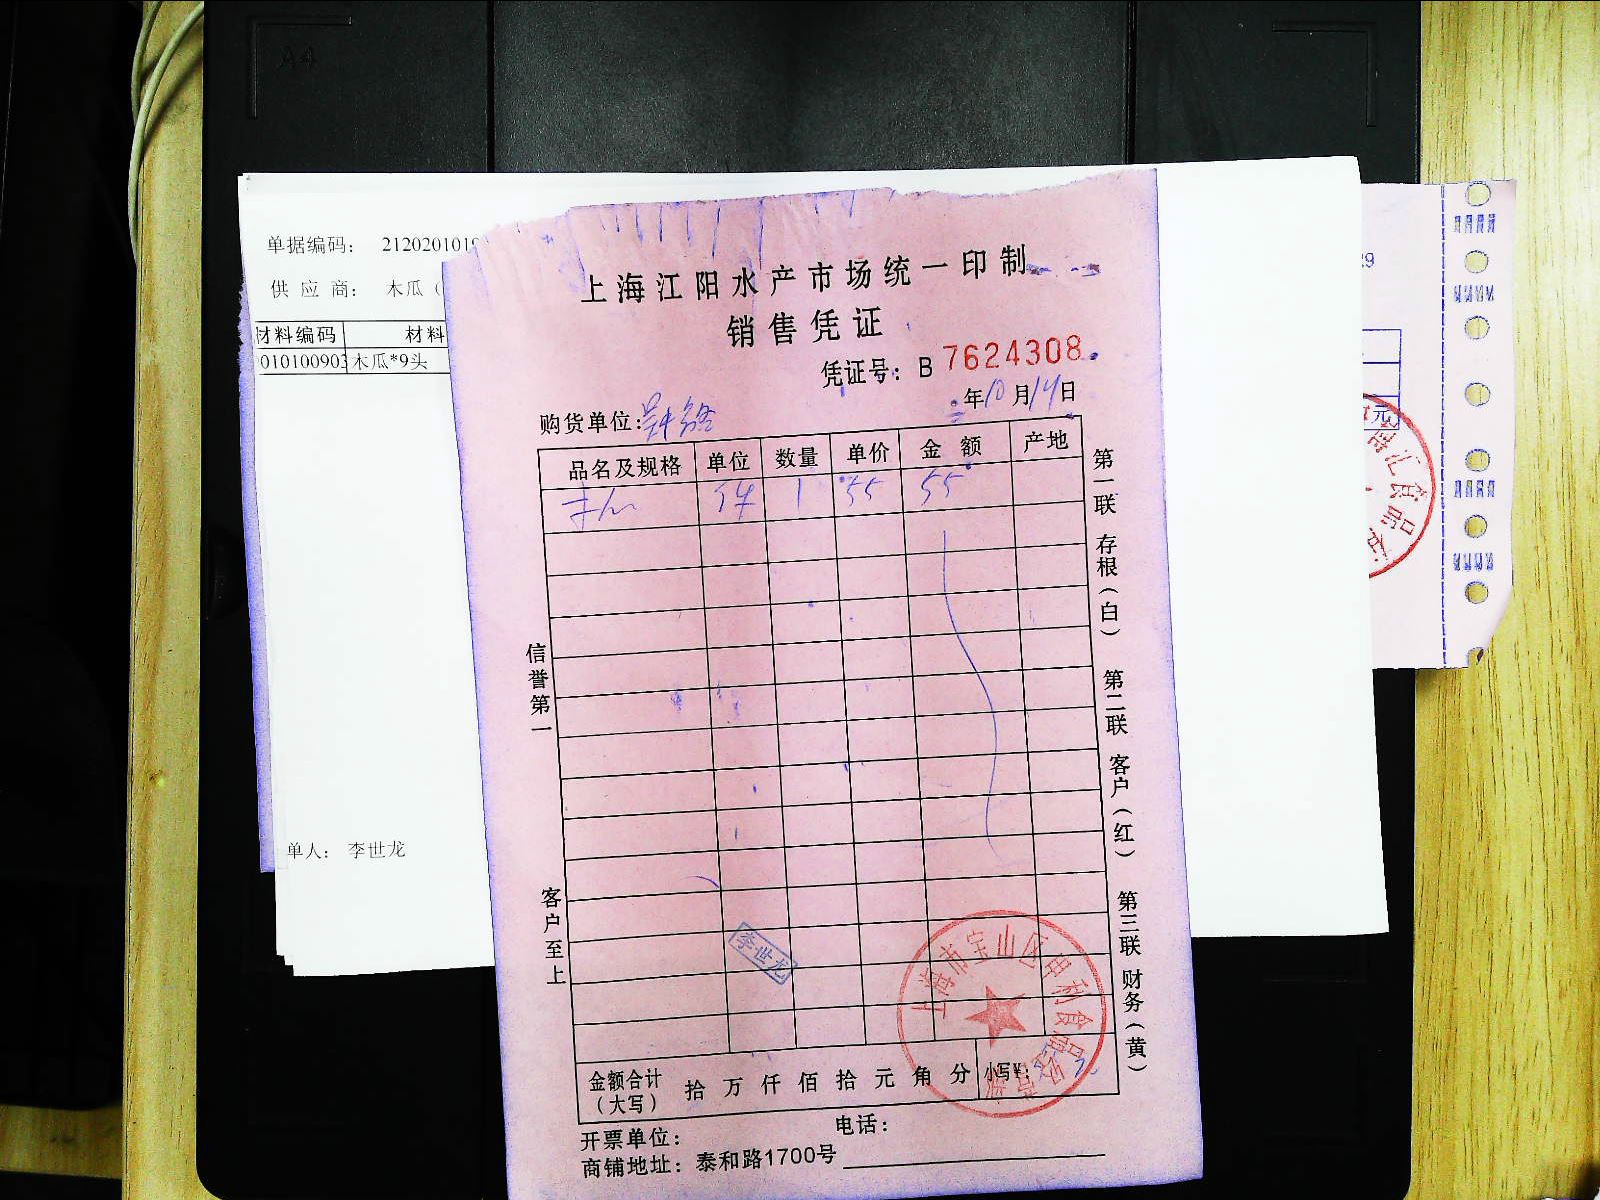 A4
单据编码： 2120201019
供 应 商： 木瓜（
材料编码 材料
010100903 木瓜*9头
单人： 李世龙
上海江阳水产市场统一印制
销售凭证
凭证号：B 7624308
年10月14日
购货单位：
品名及规格 单位 数量 单价 金 额 产地
木瓜 件 1 55 55
第一联 存根（白） 第二联 客户（红） 第三联 财务（黄）
信誉第一
客户至上
李世龙
上海市宝山区申利食品经营部
金额合计（大写） 拾 万 仟 佰 拾 元 角 分 小写¥：
开票单位： 电话：
商铺地址：泰和路1700号
29
元
汇食品